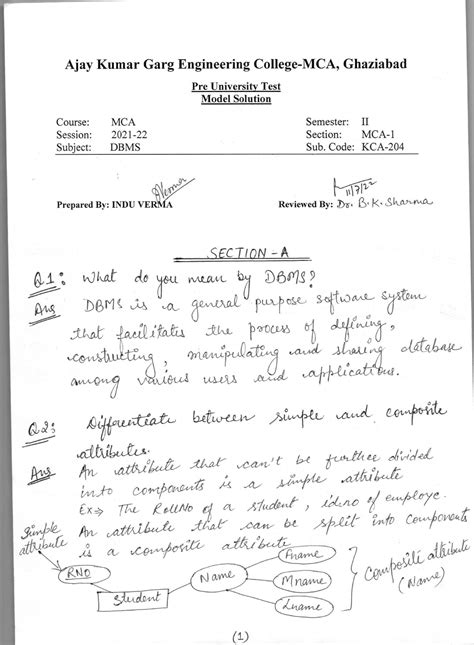 Ajay Kumar Garg Engineering College-MCA, Ghaziabad
Pre University Test
Model Solution
Course: MCA Semester: II
Session: 2021-22 Section: MCA-1
Subject: DBMS Sub. Code: KCA-204
11/7/22
Prepared By: INDU VERMA Reviewed By: Dr. B.K. Sharma
SECTION - A
Q1: What do you mean by DBMS?
Ans DBMS is a general purpose software system
that facilitates the process of defining,
constructing, manipulating and sharing database
among various users and applications.
Q2: Differentiate between simple and composite
attributes.
Ans An attribute that can't be further divided
into components is a simple attribute
Ex⇒ The RollNo of a student, idno of employe.
An attribute that can be split into Components
is a composite attribute
Simple
attribute
RNO
Student
Name
Fname
Mname
Lname
Composite attribute
(Name)
(1)